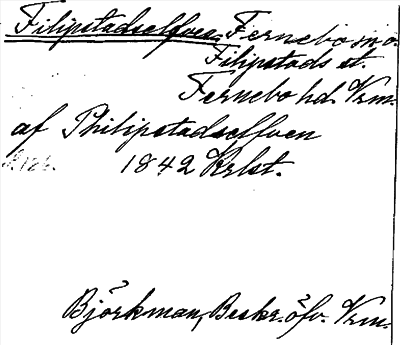 Filipstadselfven, Fernebo m o.
Filipstads st.
Fernebo hd. Vrm.
af Philipstadselfven
s. 126. 1842 Krlst.
Björkman, Beskr. öfv. Vrm.